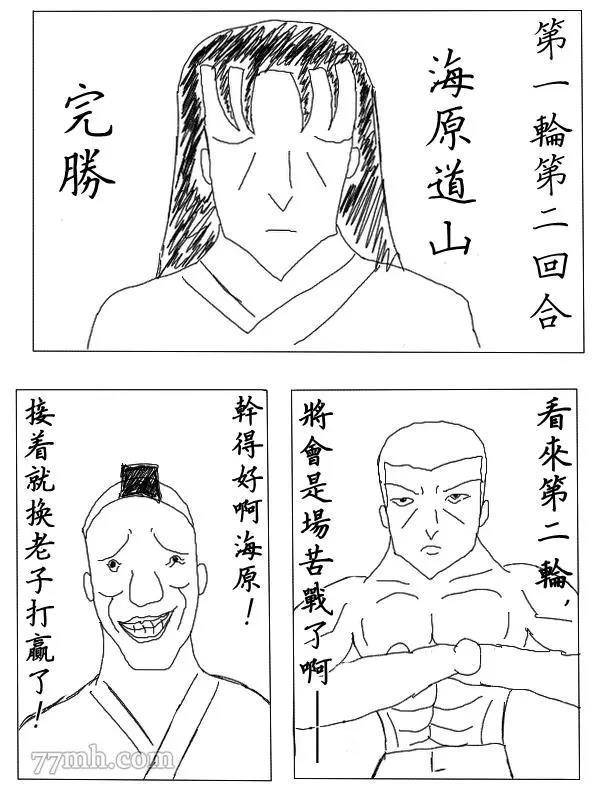 第一輪第二回合
海原道山
完勝
看來第二輪，
將會是場苦戰了啊——
幹得好啊海原！
接着就换老子打贏了！
77mh.com